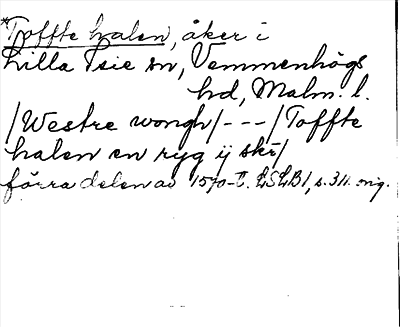 *Toffte halen, åker i
Lilla Isie sn, Vemmenhögs
hd, Malm. l.
/Westre wongh/---/Toffte
halen en ryg ij skr/
förra delen av 1570-t. LSLB1, s. 311. orig.